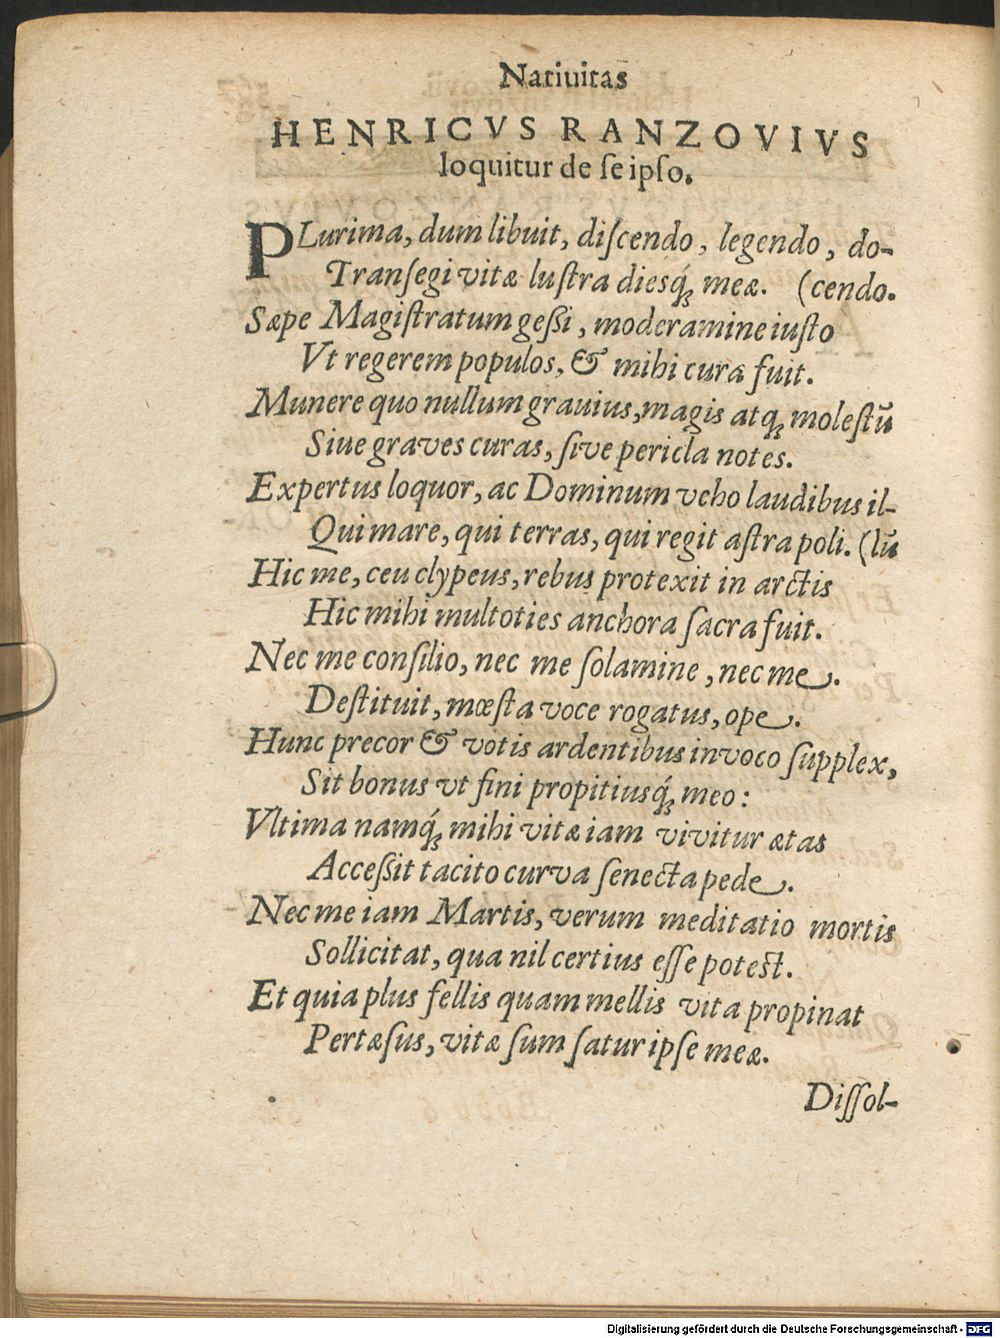 Natiuitas
HENRICVS RANZOVIVS
loquitur de se ipso.
PLurima, dum libuit, diſcendo, legendo, do-
Tranſegi vitæ luſtra diesq́; meæ. (cendo.
Sæpe Magiſtratum geßi, moderamine iuſto
Vt regerem populos, & mihi cura fuit.
Munere quo nullum grauius, magis atq; moleſtũ
Siue graves curas, ſive pericla notes.
Expertus loquor, ac Dominum veho laudibus il-
Qui mare, qui terras, qui regit aſtra poli. (lũ
Hic me, ceu clypeus, rebus protexit in arctis
Hic mihi multoties anchora ſacra fuit.
Nec me conſilio, nec me ſolamine, nec me.
Deſtituit, mœſta voce rogatus, ope.
Hunc precor & votis ardentibus invoco ſupplex,
Sit bonus vt fini propitiusq́; meo:
Vltima namq́; mihi vitæ iam vivitur ætas
Acceßit tacito curva ſenecta pede.
Nec me iam Martis, verum meditatio mortis
Sollicitat, qua nil certius eſſe poteſt.
Et quia plus fellis quam mellis vita propinat
Pertæſus, vitæ ſum ſatur ipſe meæ.
Diſſol-
Digitalisierung gefördert durch die Deutsche Forschungsgemeinschaft - DFG